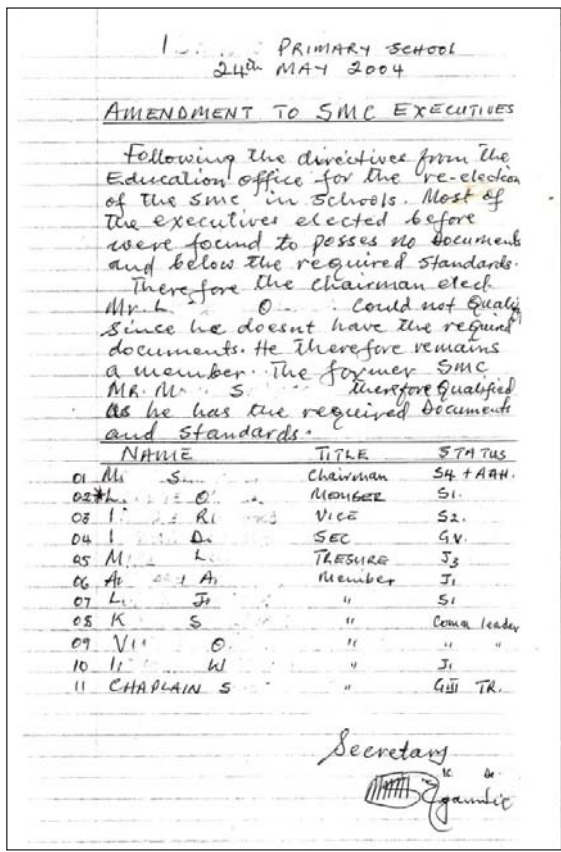 PRIMARY SCHOOL
24th MAY 2004
AMENDMENT TO SMC EXECUTIVES
Following the directives from the
Education office for the re-election
of the smc in schools. Most of
the executives elected before
were found to posses no documents
and below the required standards.
Therefore the chairman elect
Mr. L O Could not Qualify
Since he doesnt have the required
documents. He therefore remains
a member. The former SMC
MR. M S therefore Qualified
as he has the required documents
and standards.
NAME TITLE STATUS
01 M S Chairman S4 + AAH.
02 * L O MEMBER S1.
03 I Ri VICE S2.
04 I D SEC G.V.
05 M L TRESURE J3
06 A A Member J1
07 L J " S1
08 K S " Comm leader
09 Vi O " " "
10 W " J1
11 CHAPLAIN S " GIII TR.
Secretary